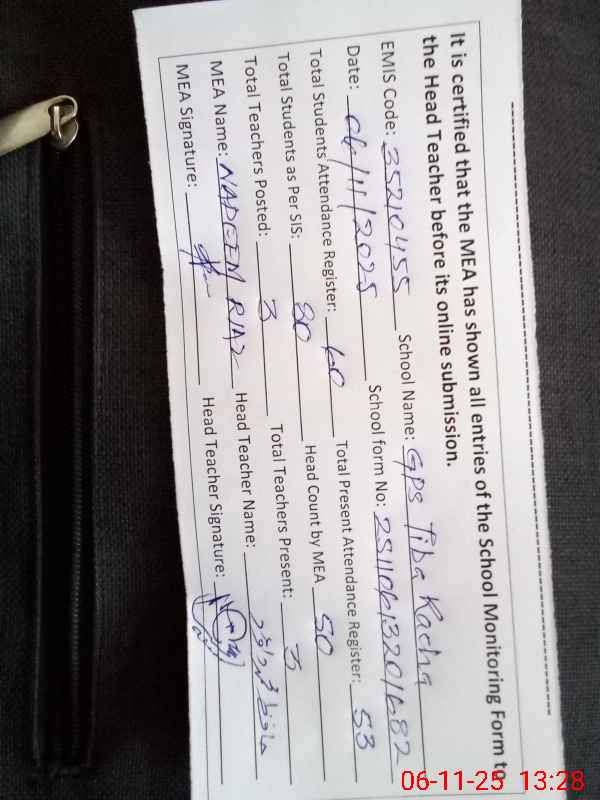 It is certified that the MEA has shown all entries of the School Monitoring Form to
the Head Teacher before its online submission.
EMIS Code: 35210455 School Name: GPS Tiba Kacha
Date: 06/11/2025 School form No:
Total Students Attendance Register: 60 Total Present Attendance Register: 53
Total Students as Per SIS: Head Count by MEA 50
Total Teachers Posted: 3 Total Teachers Present: 3
MEA Name: NADEEM RIAZ Head Teacher Name:
MEA Signature: Head Teacher Signature:
06-11-25 13:28